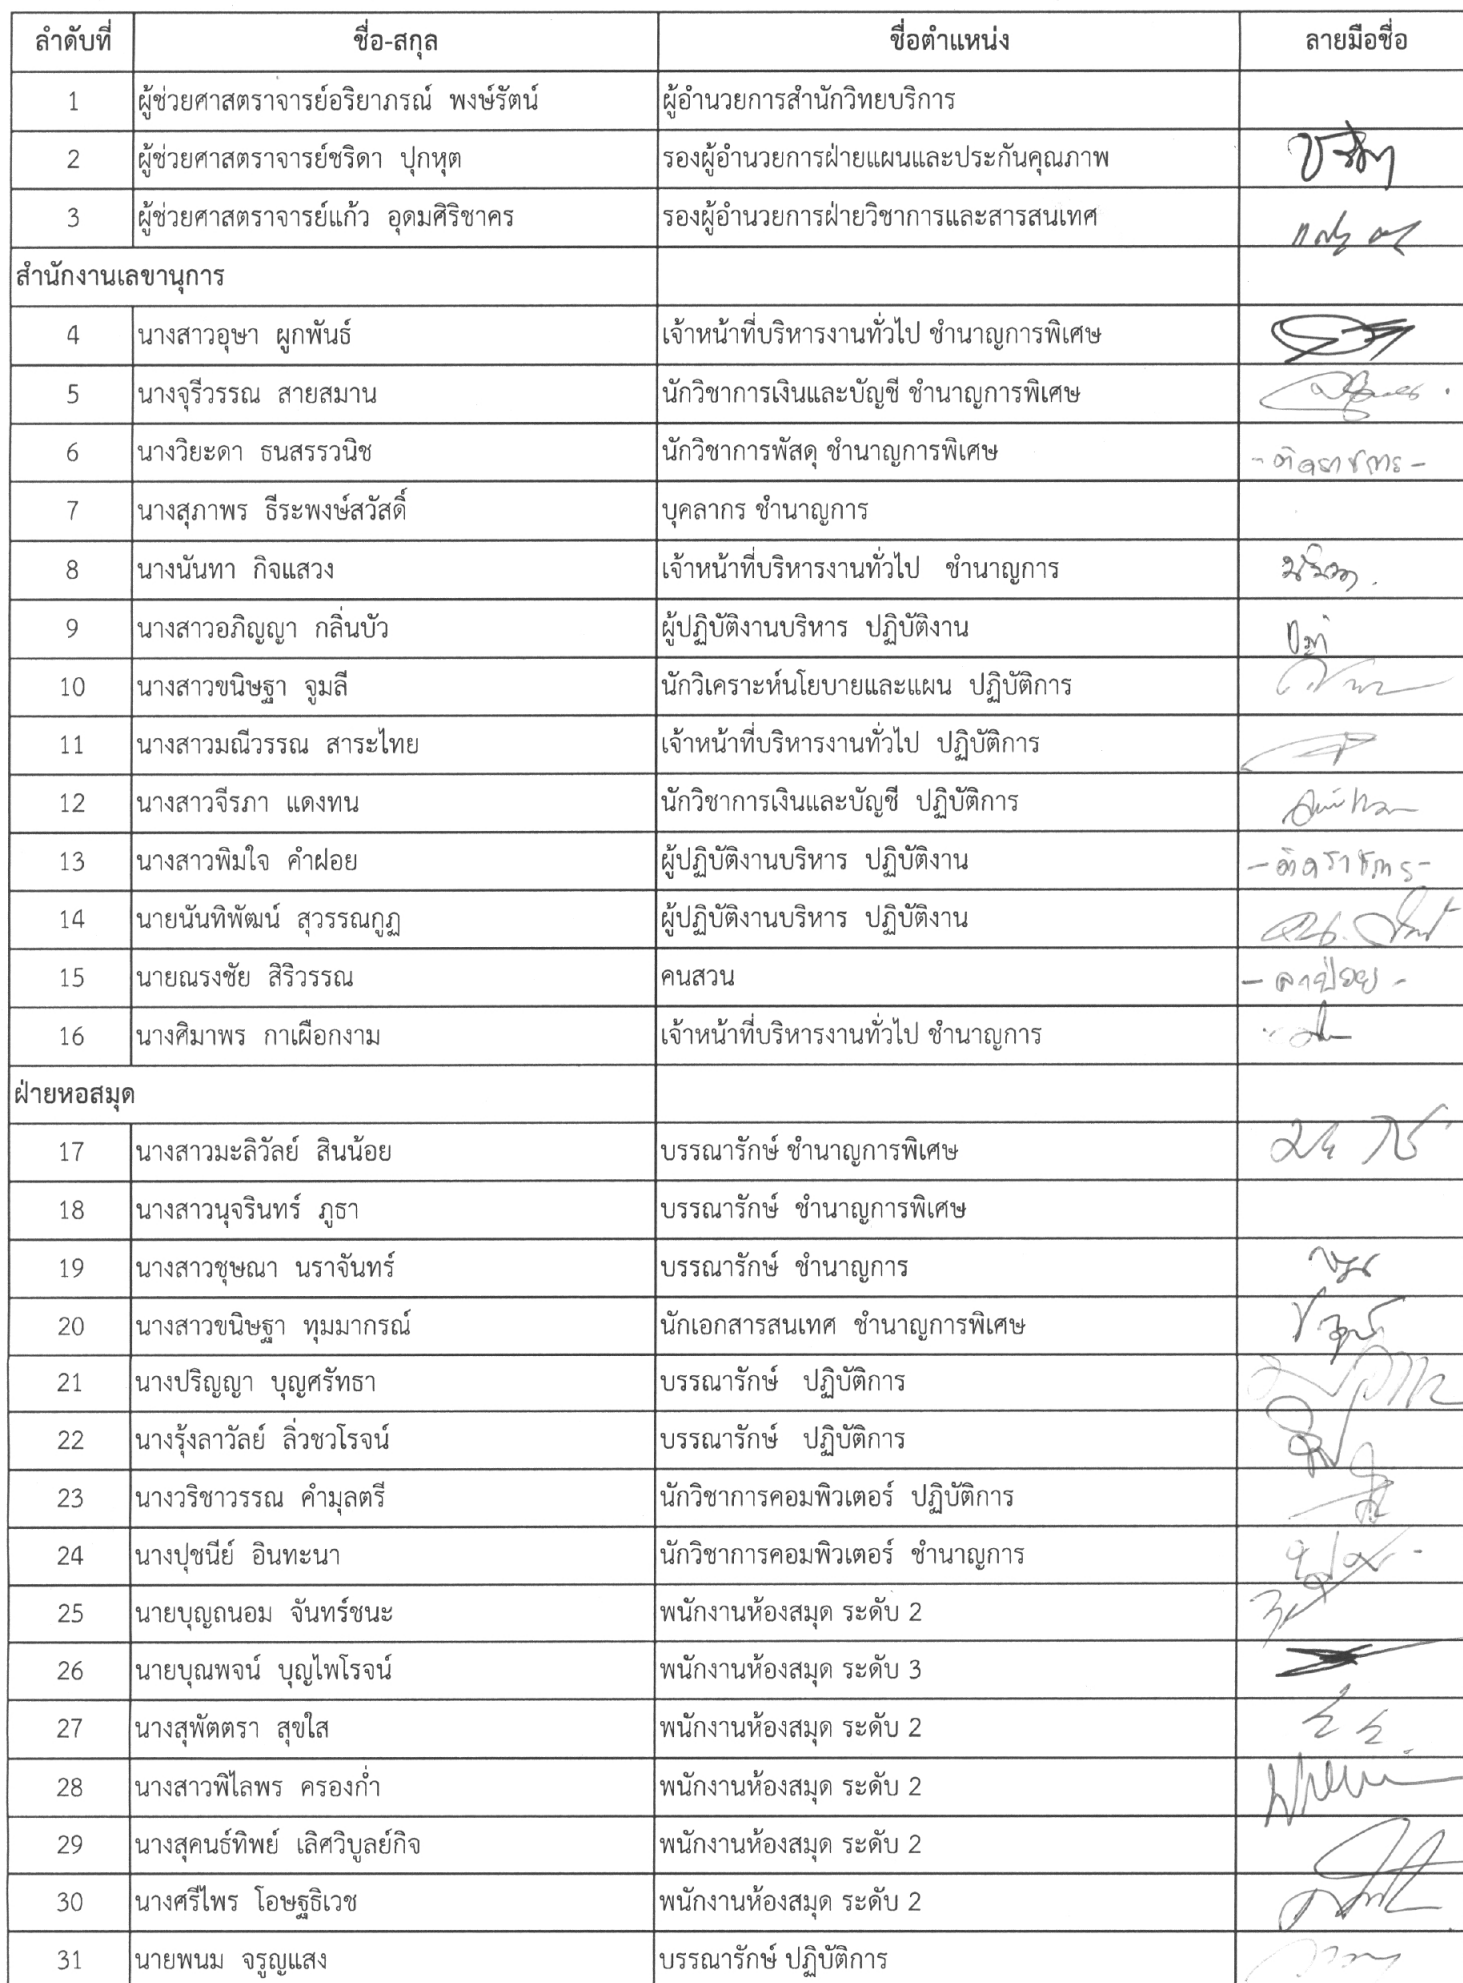 ลำดับที่ ชื่อ-สกุล ชื่อตำแหน่ง ลายมือชื่อ
1 ผู้ช่วยศาสตราจารย์อริยาภรณ์ พงษ์รัตน์ ผู้อำนวยการสำนักวิทยบริการ
2 ผู้ช่วยศาสตราจารย์ชริดา ปุกหุต รองผู้อำนวยการฝ่ายแผนและประกันคุณภาพ
3 ผู้ช่วยศาสตราจารย์แก้ว อุดมศิริชาคร รองผู้อำนวยการฝ่ายวิชาการและสารสนเทศ
สำนักงานเลขานุการ
4 นางสาวอุษา ผูกพันธ์ เจ้าหน้าที่บริหารงานทั่วไป ชำนาญการพิเศษ
5 นางจุรีวรรณ สายสมาน นักวิชาการเงินและบัญชี ชำนาญการพิเศษ
6 นางวิยะดา ธนสรรวนิช นักวิชาการพัสดุ ชำนาญการพิเศษ -ติดราชการ-
7 นางสุภาพร ธีระพงษ์สวัสดิ์ บุคลากร ชำนาญการ
8 นางนันทา กิจแสวง เจ้าหน้าที่บริหารงานทั่วไป ชำนาญการ
9 นางสาวอภิญญา กลิ่นบัว ผู้ปฏิบัติงานบริหาร ปฏิบัติงาน
10 นางสาวขนิษฐา จูมลี นักวิเคราะห์นโยบายและแผน ปฏิบัติการ
11 นางสาวมณีวรรณ สาระไทย เจ้าหน้าที่บริหารงานทั่วไป ปฏิบัติการ
12 นางสาวจีรภา แดงทน นักวิชาการเงินและบัญชี ปฏิบัติการ
13 นางสาวพิมใจ คำฝอย ผู้ปฏิบัติงานบริหาร ปฏิบัติงาน -ติดราชการ-
14 นายนันทิพัฒน์ สุวรรณกูฏ ผู้ปฏิบัติงานบริหาร ปฏิบัติงาน
15 นายณรงชัย สิริวรรณ คนสวน -ลาป่วย-
16 นางศิมาพร กาเผือกงาม เจ้าหน้าที่บริหารงานทั่วไป ชำนาญการ
ฝ่ายหอสมุด
17 นางสาวมะลิวัลย์ สินน้อย บรรณารักษ์ ชำนาญการพิเศษ
18 นางสาวนุจรินทร์ ภูธา บรรณารักษ์ ชำนาญการพิเศษ
19 นางสาวชุษณา นราจันทร์ บรรณารักษ์ ชำนาญการ
20 นางสาวขนิษฐา ทุมมากรณ์ นักเอกสารสนเทศ ชำนาญการพิเศษ
21 นางปริญญา บุญศรัทธา บรรณารักษ์ ปฏิบัติการ
22 นางรุ้งลาวัลย์ ลิ่วชวโรจน์ บรรณารักษ์ ปฏิบัติการ
23 นางวริชาวรรณ คำมุลตรี นักวิชาการคอมพิวเตอร์ ปฏิบัติการ
24 นางปุชนีย์ อินทะนา นักวิชาการคอมพิวเตอร์ ชำนาญการ
25 นายบุญถนอม จันทร์ชนะ พนักงานห้องสมุด ระดับ 2
26 นายบุณพจน์ บุญไพโรจน์ พนักงานห้องสมุด ระดับ 3
27 นางสุพัตตรา สุขใส พนักงานห้องสมุด ระดับ 2
28 นางสาวพิไลพร ครองก่ำ พนักงานห้องสมุด ระดับ 2
29 นางสุคนธ์ทิพย์ เลิศวิบูลย์กิจ พนักงานห้องสมุด ระดับ 2
30 นางศรีไพร โอษฐธิเวช พนักงานห้องสมุด ระดับ 2
31 นายพนม จรูญแสง บรรณารักษ์ ปฏิบัติการ